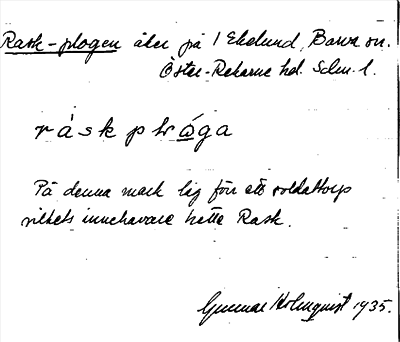 Rask-plogen åker på 1 Ekelund, Barva sn.
Öster-Rekarne hd. Söm. l.
råskplωga
På denna mark låg förr ett soldattorp
vilkets innehavare hette Rask.
Gunnar Holmquist 1935.